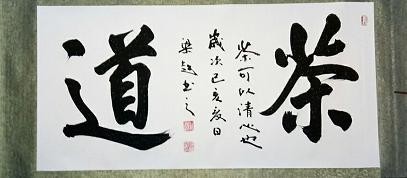 茶道
茶可以清心也
歲次己亥夏日
梁超書之